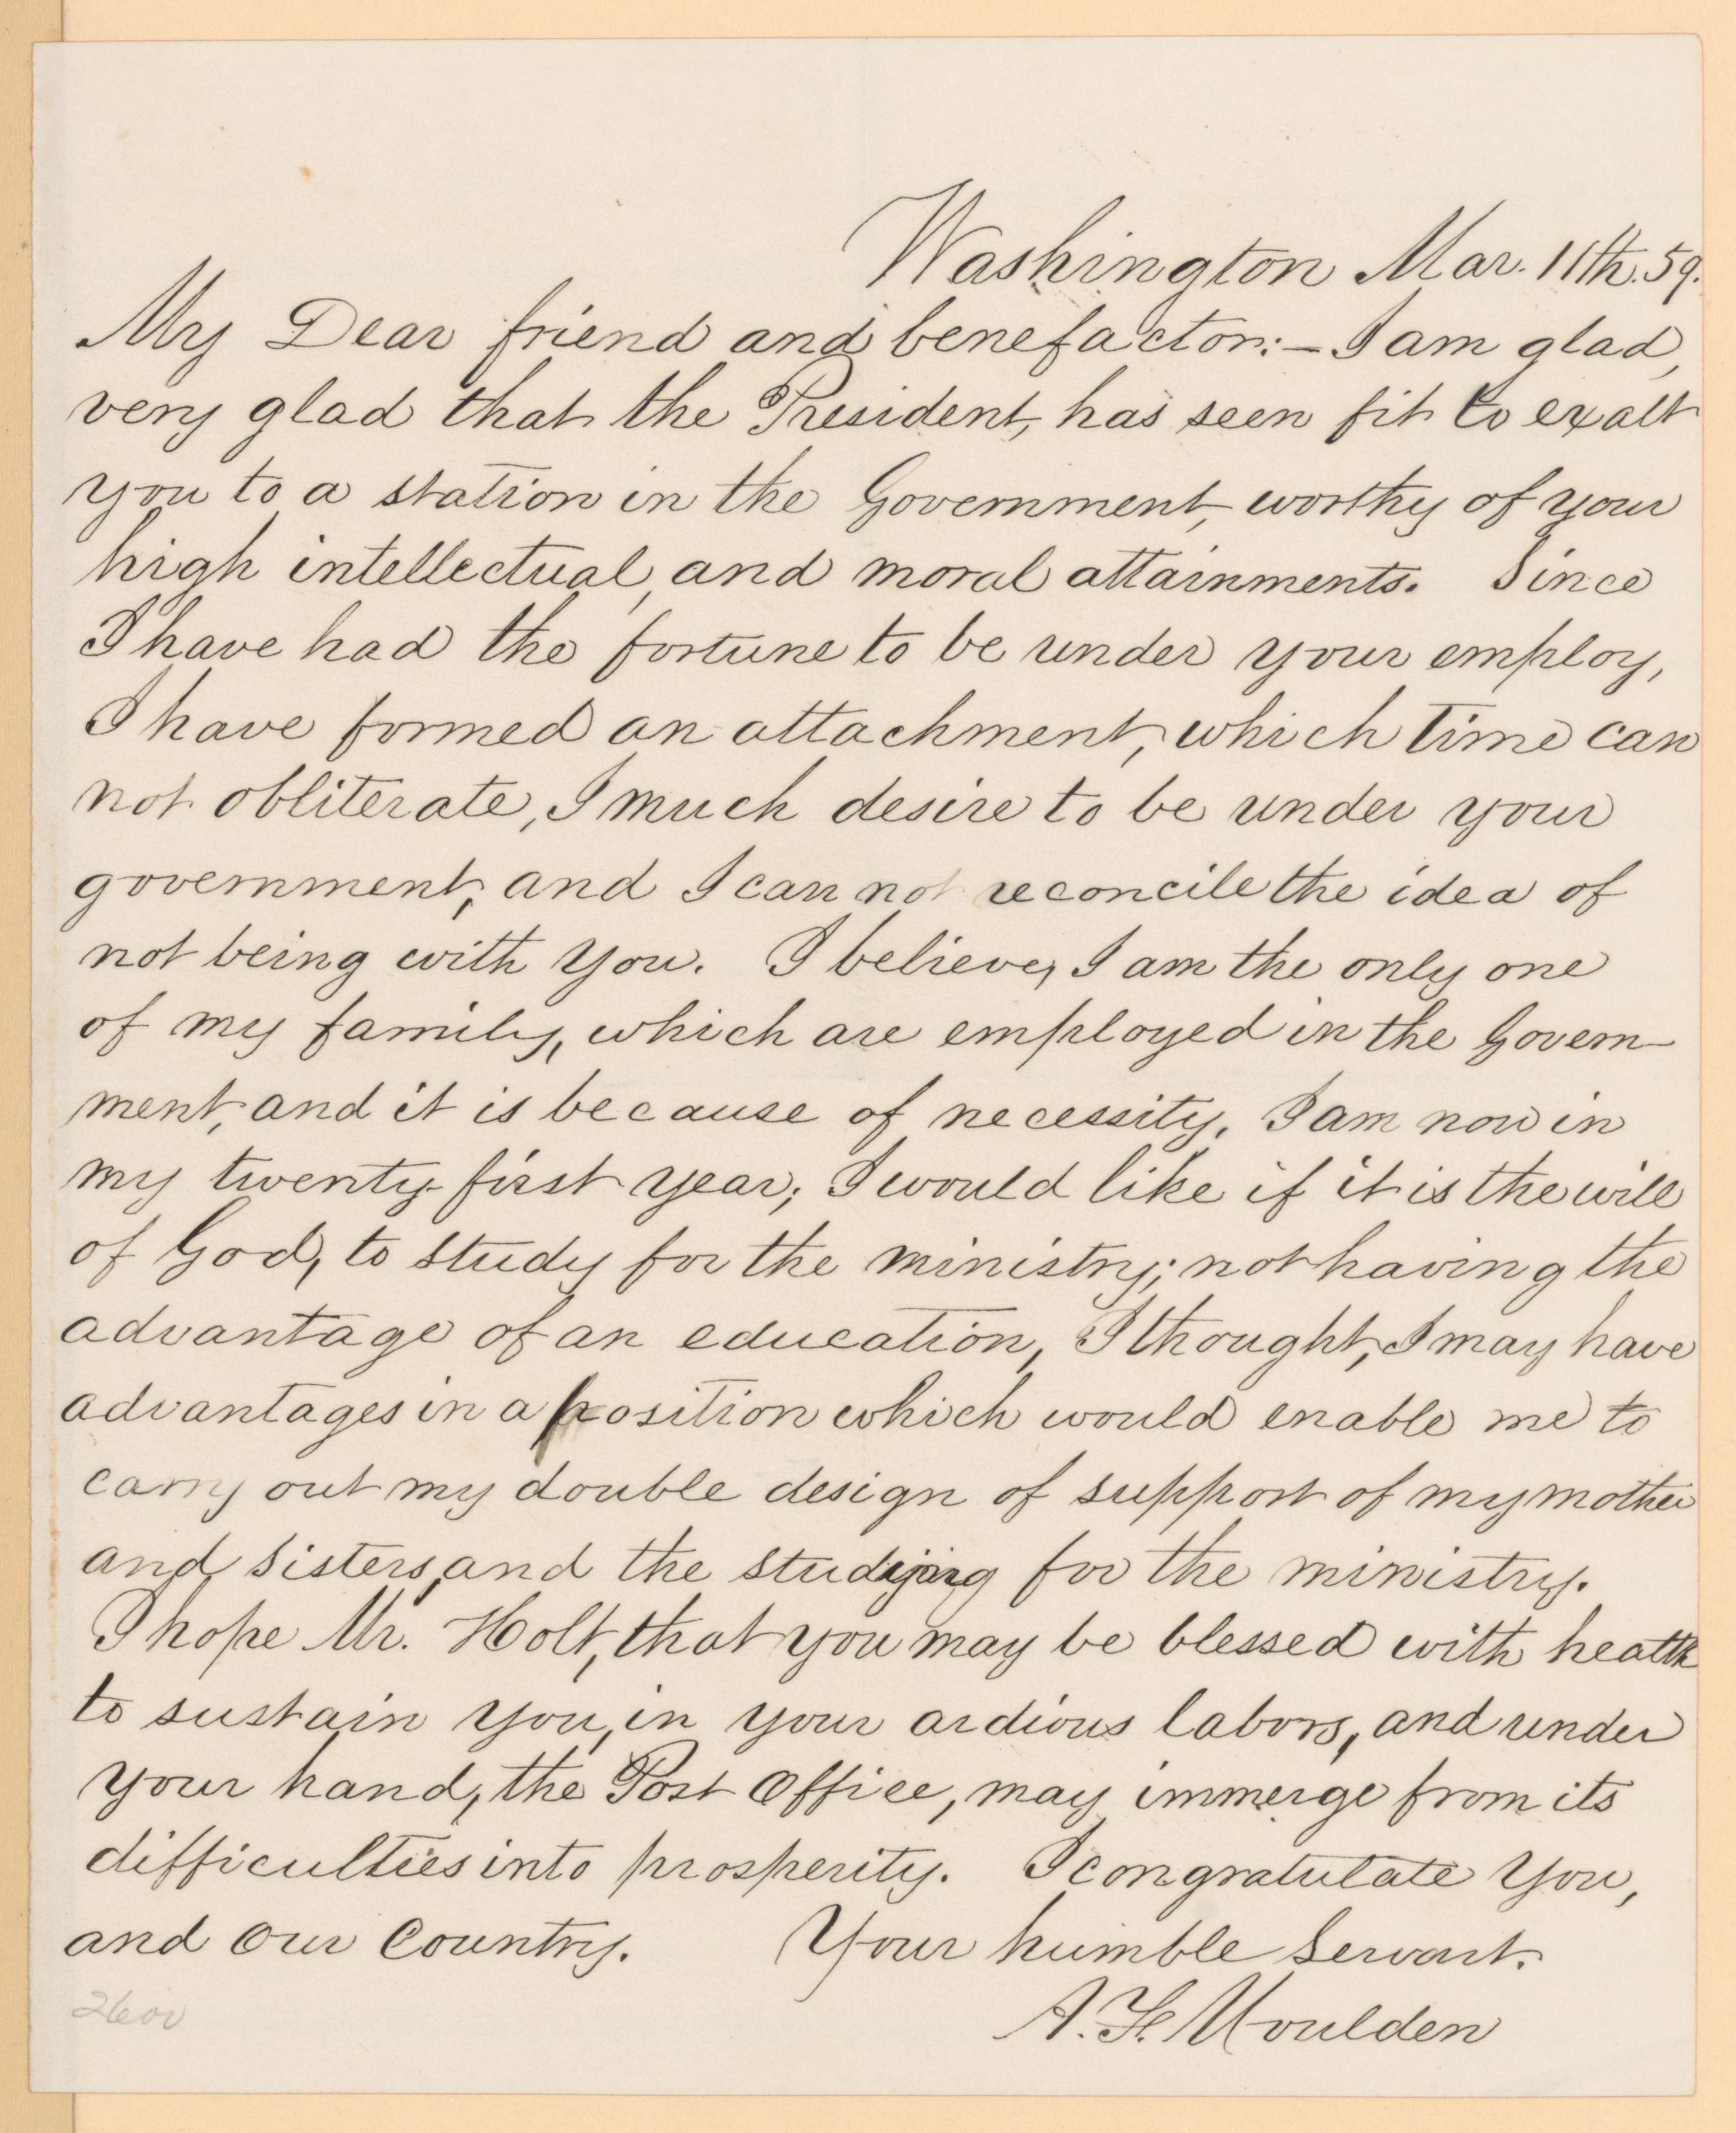 Washington Mar. 11th. 59.
My Dear friend and benefactor:— I am glad,
very glad that the President, has seen fit to exalt
you to a station in the Government, worthy of your
high intellectual, and moral attainments. Since
I have had the fortune to be under your employ,
I have formed an attachment, which time can
not obliterate, I much desire to be under your
government, and I can not reconcile the idea of
not being with you. I believe, I am the only one
of my family, which are employed in the Govern-
ment, and it is because of necessity. I am now in
my twenty-first year; I would like if it is the will
of God, to study for the ministry; not having the
advantage of an education, I thought, I may have
advantages in a position which would enable me to
carry out my double design of support of my mother
and sisters, and the studying for the ministry.
I hope Mr. Holt, that you may be blessed with health
to sustain you, in your ardious labors, and under
your hand, the Post Office, may immerge from its
difficulties into prosperity. I congratulate you,
and our Country. Your humble Servant.
A. F. Moulden